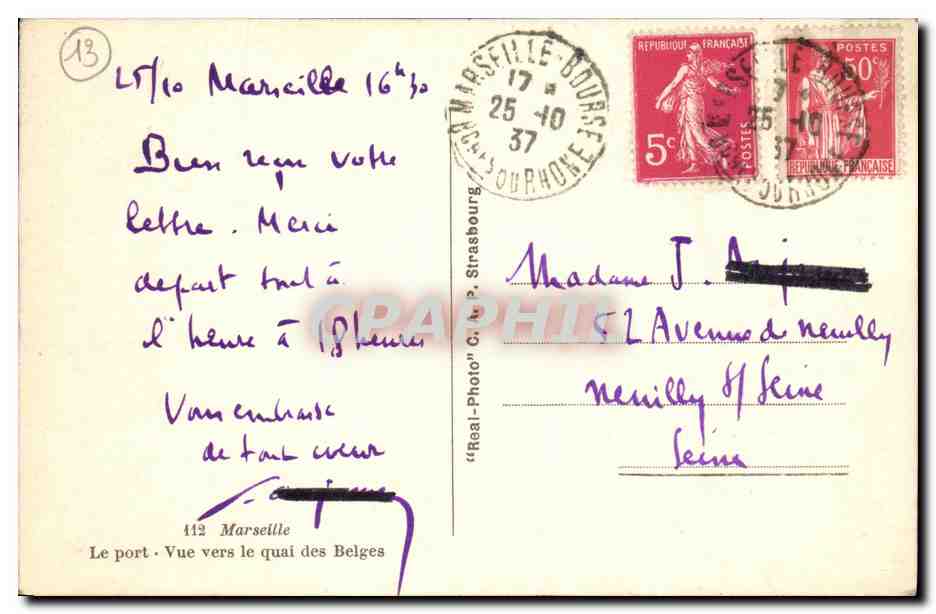 13
25/10 Marseille 16h30
Bien reçu votre
lettre. Merci
depart tout à
l'heure à 18 heures
Vous embrasse
de tout coeur
112 Marseille
Le port - Vue vers le quai des Belges
"Real-Photo" C. A. P. Strasbourg
MARSEILLE-BOURSE
17 *
25 -10
37
BCHES DU RHONE
REPUBLIQUE FRANÇAISE
5c
POSTES
POSTES
50c
REPUBLIQUE FRANÇAISE
25 -10
37
Madame J.
52 Avenue de Neuilly
Neuilly S/ Seine
Seine
CPAPHIL